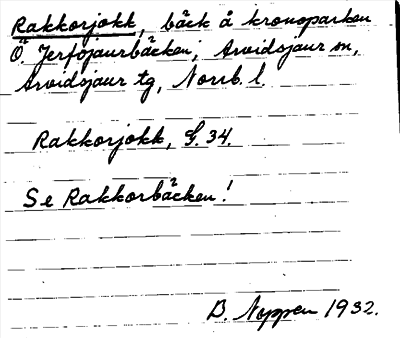 Rakkorjokk, bäck å kronoparken
Ö. Jerfojaurbäcken; Arvidsjaur sn,
Arvidsjaur tg, Norrb. l.
Rakkorjokk, G. 34.
Se Rakkorbäcken!
B. Noppen 1932.